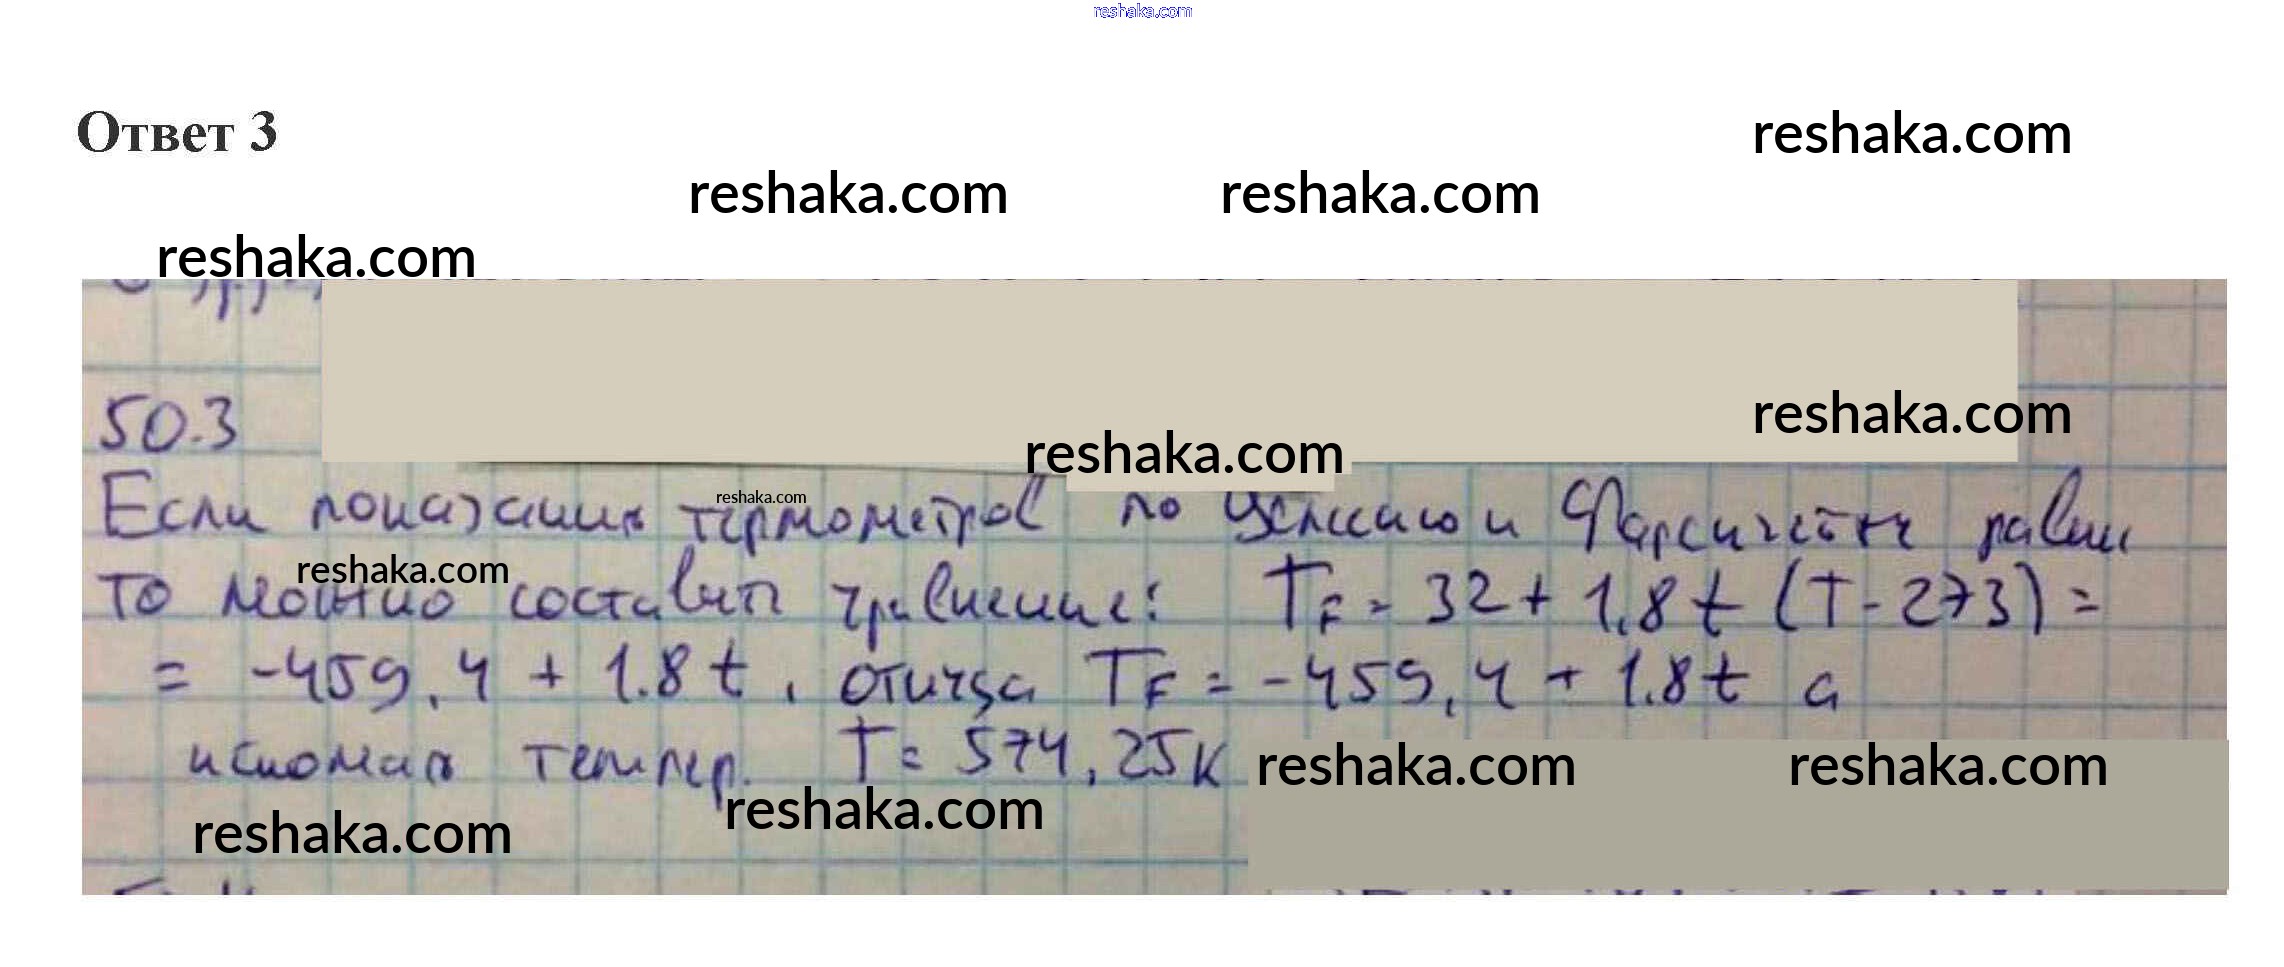 reshaka.com
Ответ 3
reshaka.com
reshaka.com reshaka.com
reshaka.com
50.3
reshaka.com
reshaka.com
Если показания термометров по Цельсию и Фаренгейту равны
reshaka.com
reshaka.com
то можно составить уравнение: T_F = 32 + 1,8 t (T - 273) =
= -459,4 + 1.8 t, откуда T_F = -459,4 + 1.8 t а
искомая темпер. T = 574,25 К
reshaka.com reshaka.com
reshaka.com reshaka.com